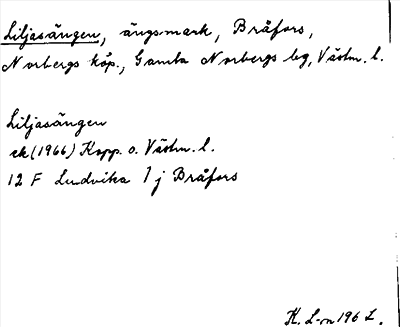 Liljasängen, ängsmark, Bråfors,
Norbergs köp., Gamla Norbergs bg, Västm. l.
Liljasängen
ek (1966) Kopp. o. Västm. l.
12 F Ludvika 1 j Bråfors
K. L-n 196